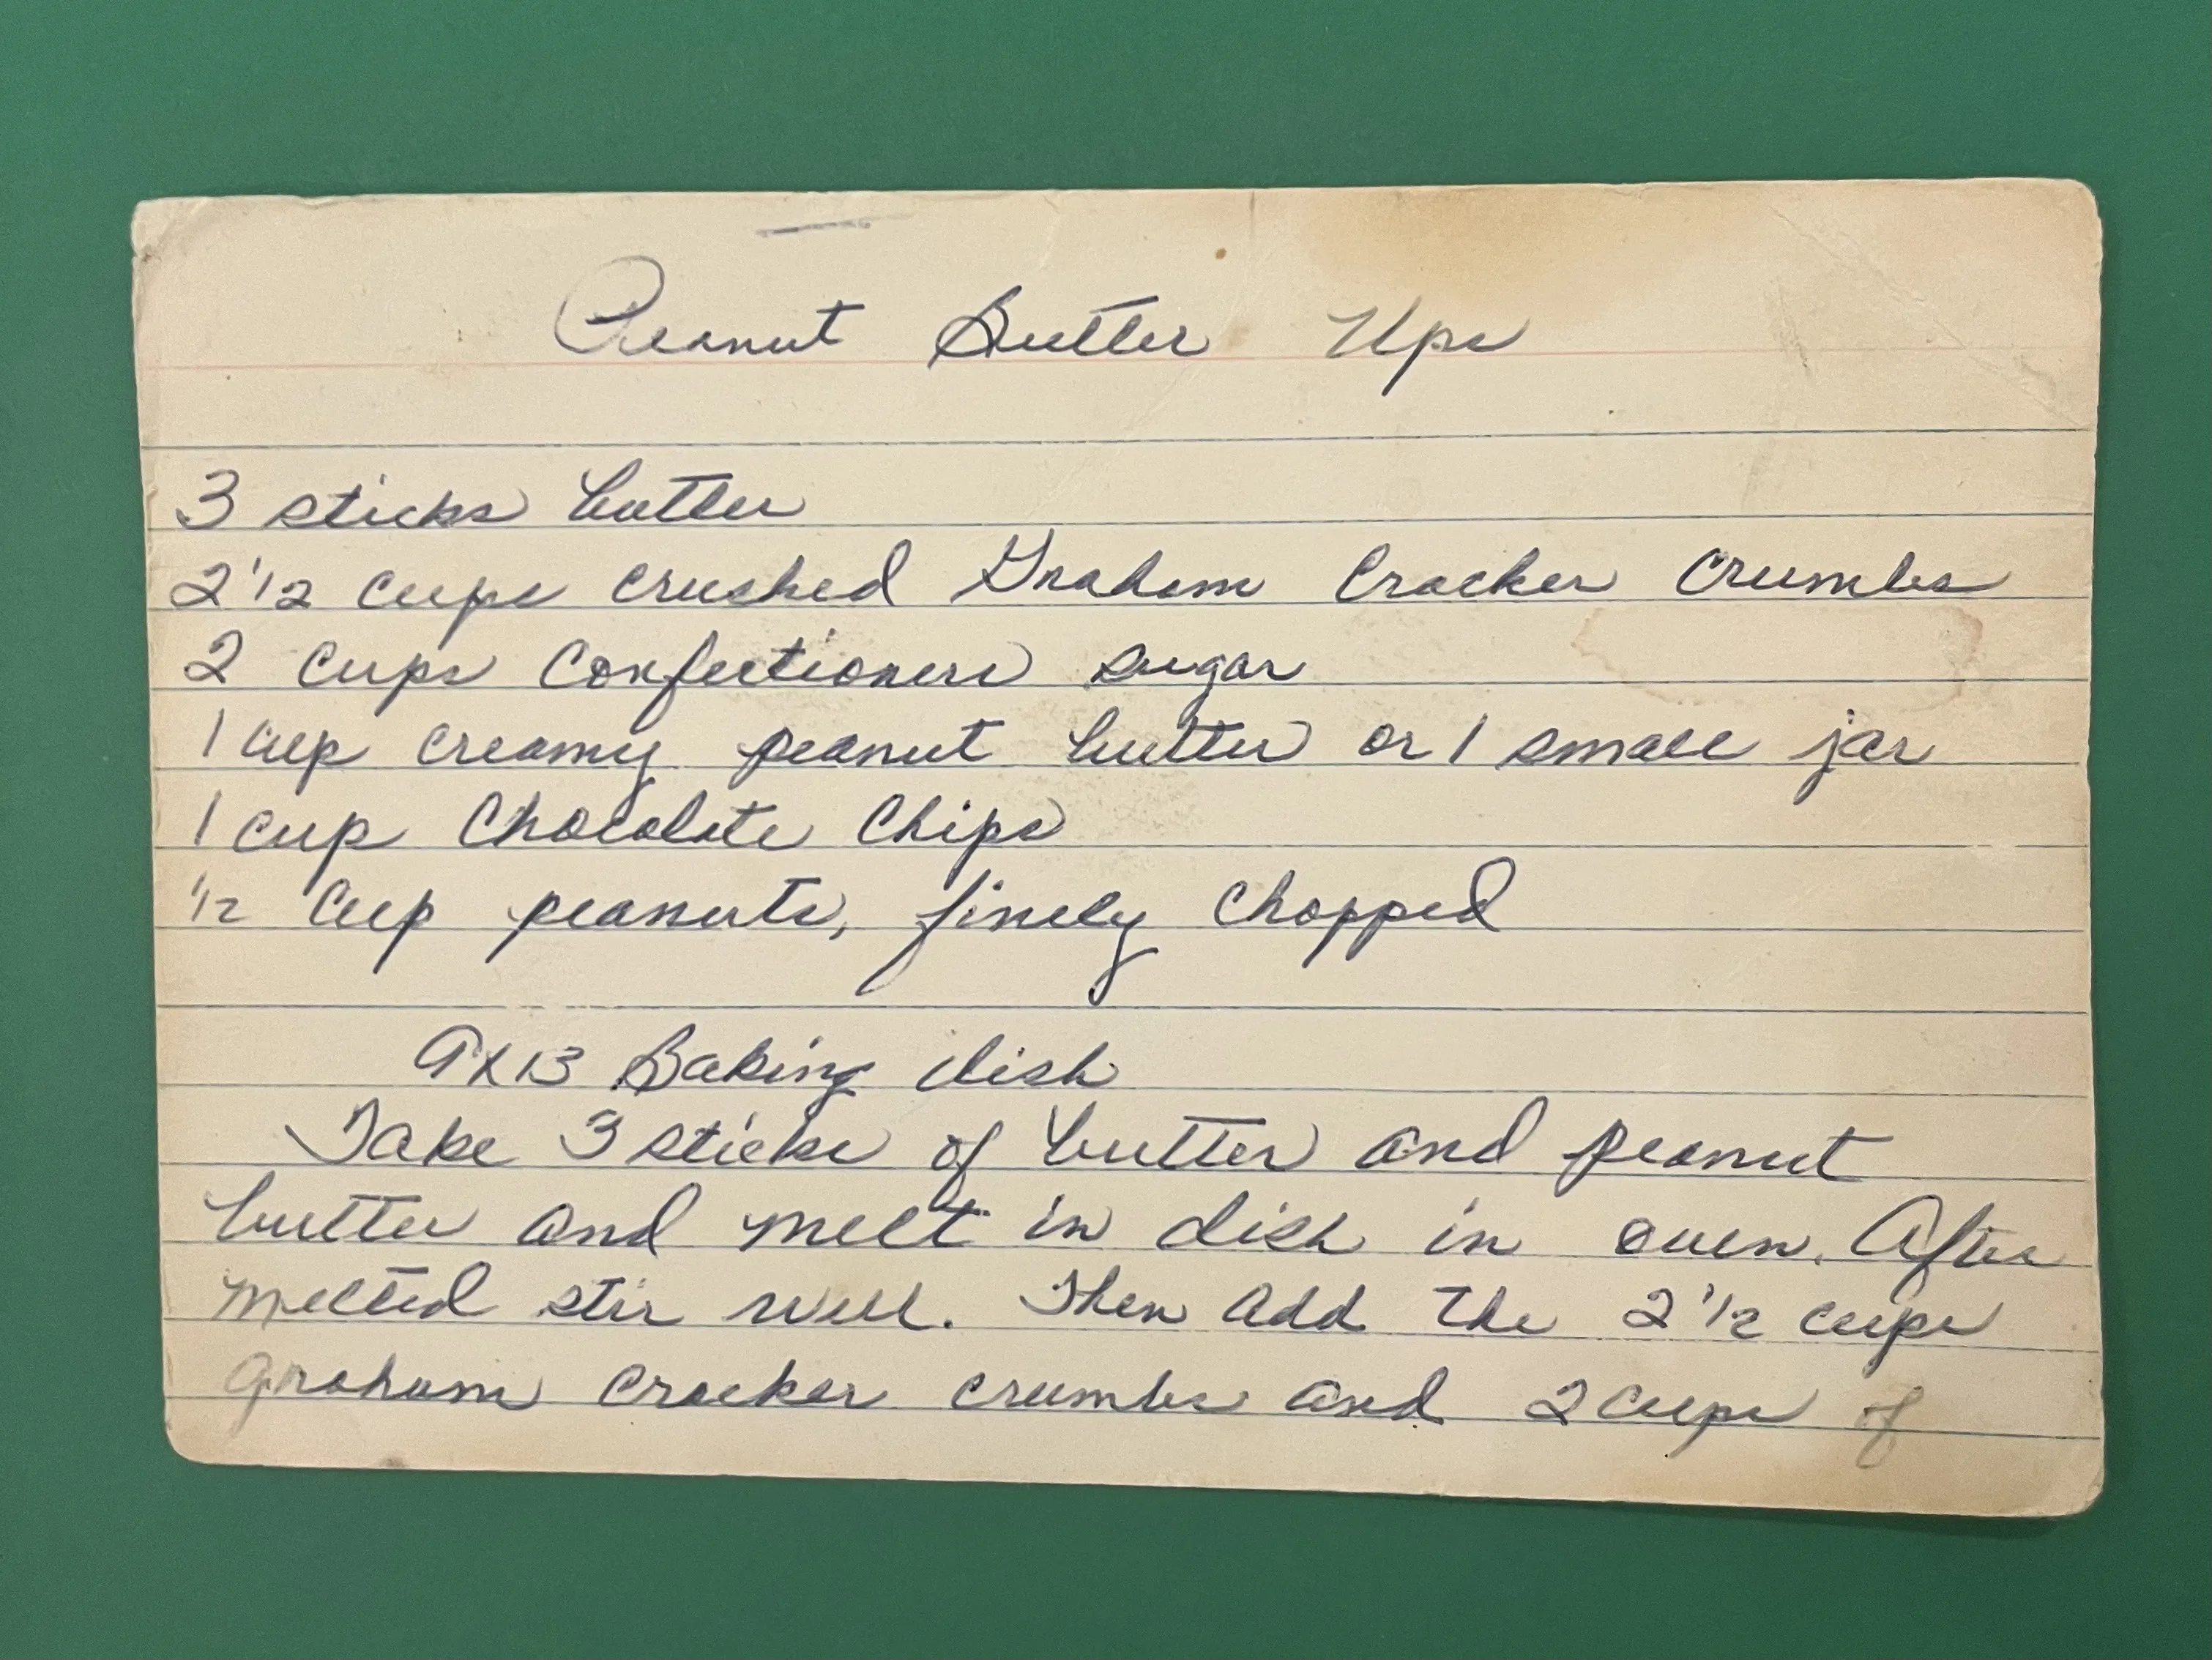 Peanut Butter Ups
3 sticks butter
2 1/2 cups crushed Graham Cracker Crumbs
2 cups Confectioners sugar
1 cup creamy peanut butter or 1 small jar
1 cup Chocolate Chips
1/2 Cup peanuts, finely chopped
9x13 Baking dish
Take 3 sticks of butter and peanut
butter and melt in dish in oven. After
melted stir well. Then add the 2 1/2 cups
graham cracker crumbs and 2 cups of